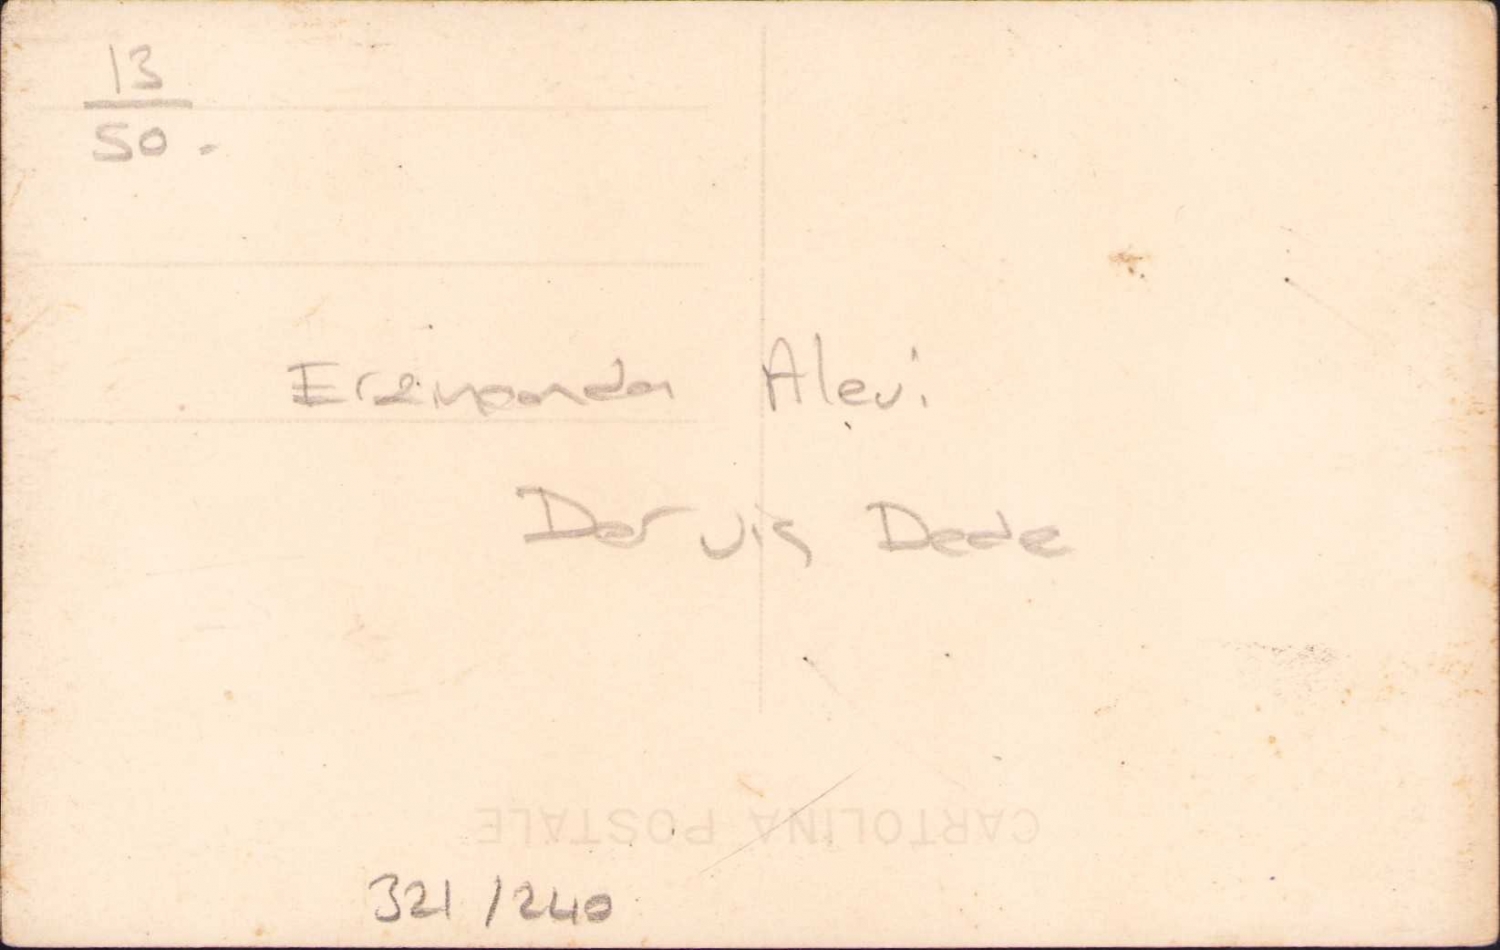 13
50.
Erzincanda Alevi
Derviş Dede
CARTOLINA POSTALE
321/240